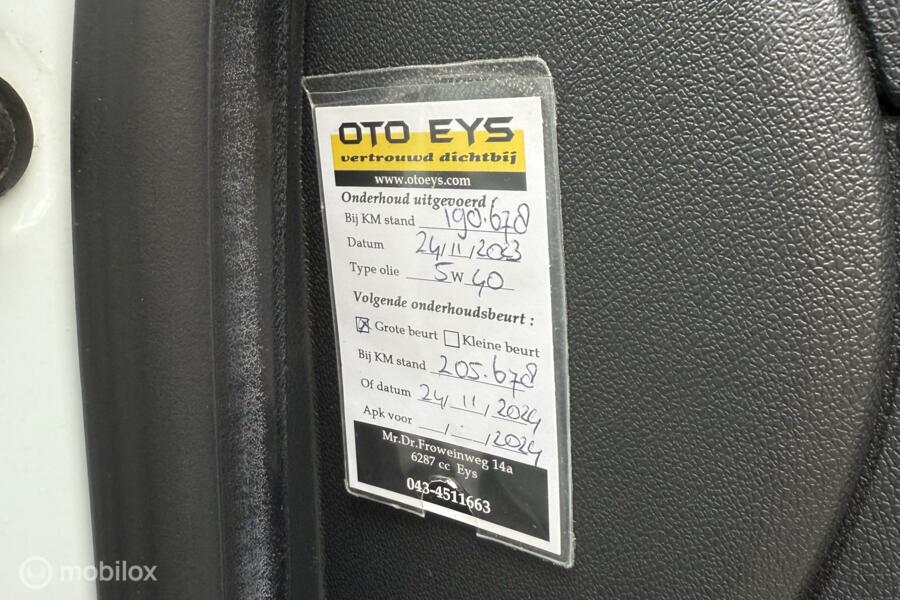 OTO EYS
vertrouwd dichtbij
www.otoeys.com
Onderhoud uitgevoerd :
Bij KM stand 190.678
Datum 24/11/2023
Type olie 5W 40
Volgende onderhoudsbeurt :
☒ Grote beurt ☐ Kleine beurt
Bij KM stand 205.678
Of datum 24/11/2024
Apk voor __/__/2024
Mr.Dr.Froweinweg 14a
6287 cc Eys
043-4511663
mobilox